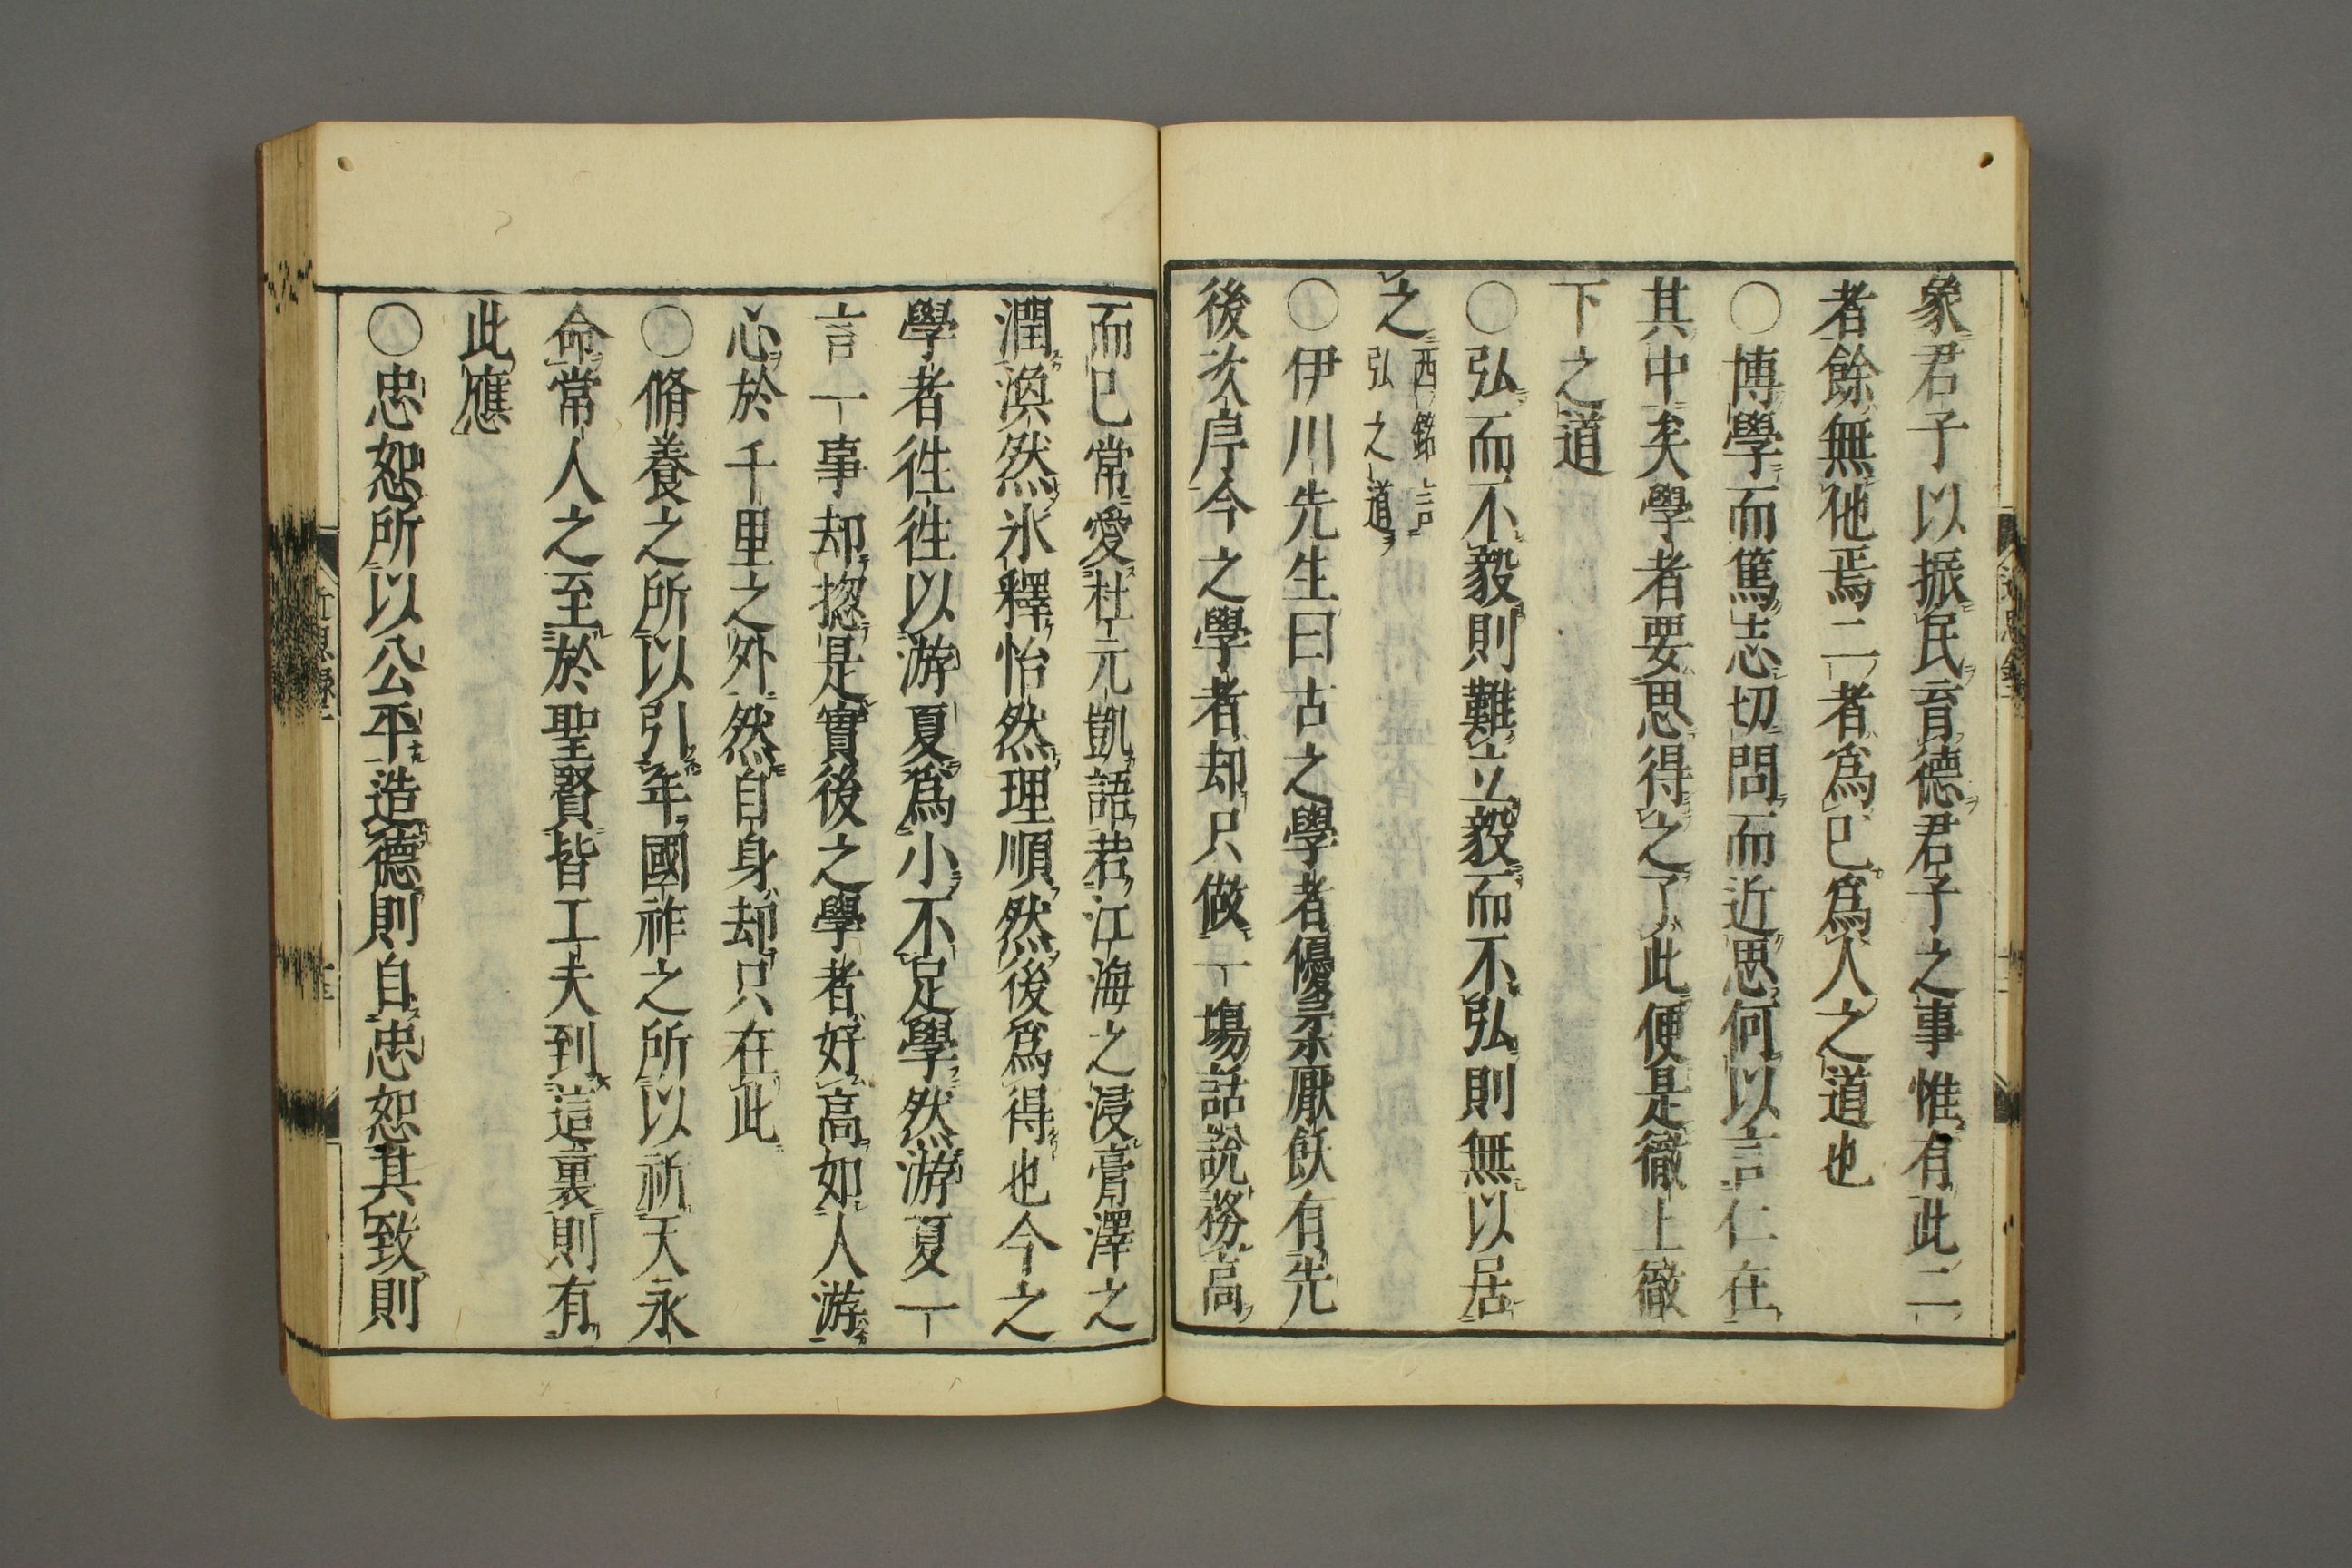 象君子以振民育德君子之事惟有此二
者餘無他焉二者爲己爲人之道也
〇博學而篤志切問而近思何以言仁在
其中矣學者要思得之了此便是徹上徹
下之道
〇弘而不毅則難立毅而不弘則無以居
之西銘言
弘之道
〇伊川先生曰古之學者優柔厭飫有先
後次序今之學者却只做一塲話說務高
而已常愛杜元凱語若江海之浸膏澤之
潤渙然氷釋怡然理順然後爲得也今之
學者徃徃以游夏爲小不足學然游夏一
言一事却揔是實後之學者好高如人游
心於千里之外然自身却只在此
〇脩養之所以引年國祚之所以祈天永
命常人之至於聖賢皆工夫到這裏則有
此應
〇忠恕所以公平造德則自忠恕其致則
近思録二